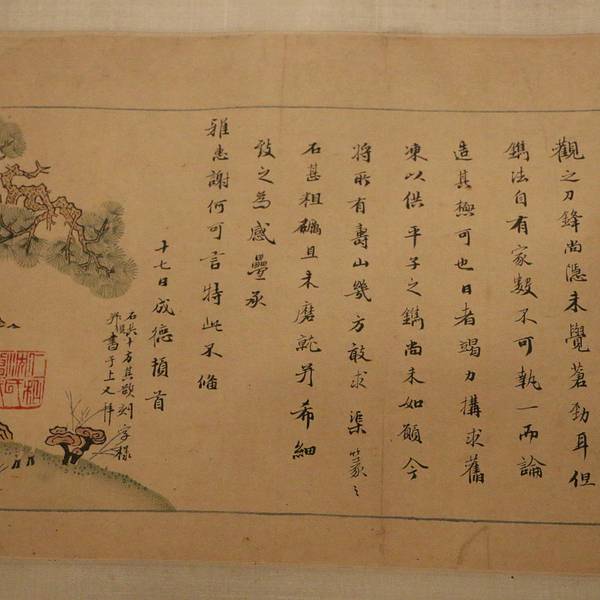 觀之刀鋒尚隱未覺蒼勁耳但
鐫法自有家數不可執一而論
造其極可也日者竭力搆求舊
凍以供平子之鐫尚未如願今
將所有壽山幾方敢求渠篆之
石甚粗礪且未磨就并希細
致之為感疊承
雅惠謝何可言特此不備
十七日成德頓首
石共十方其欲刻字樣
俱書于上又拜